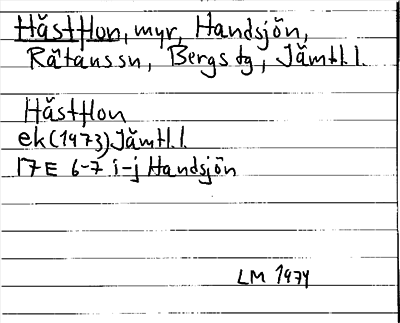 Hästflon, myr, Handsjön,
Rätans sn, Bergs tg, Jämtl. l.
Hästflon
ek (1973) Jämtl. l.
17E 6-7 i-j Handsjön
LM 1974